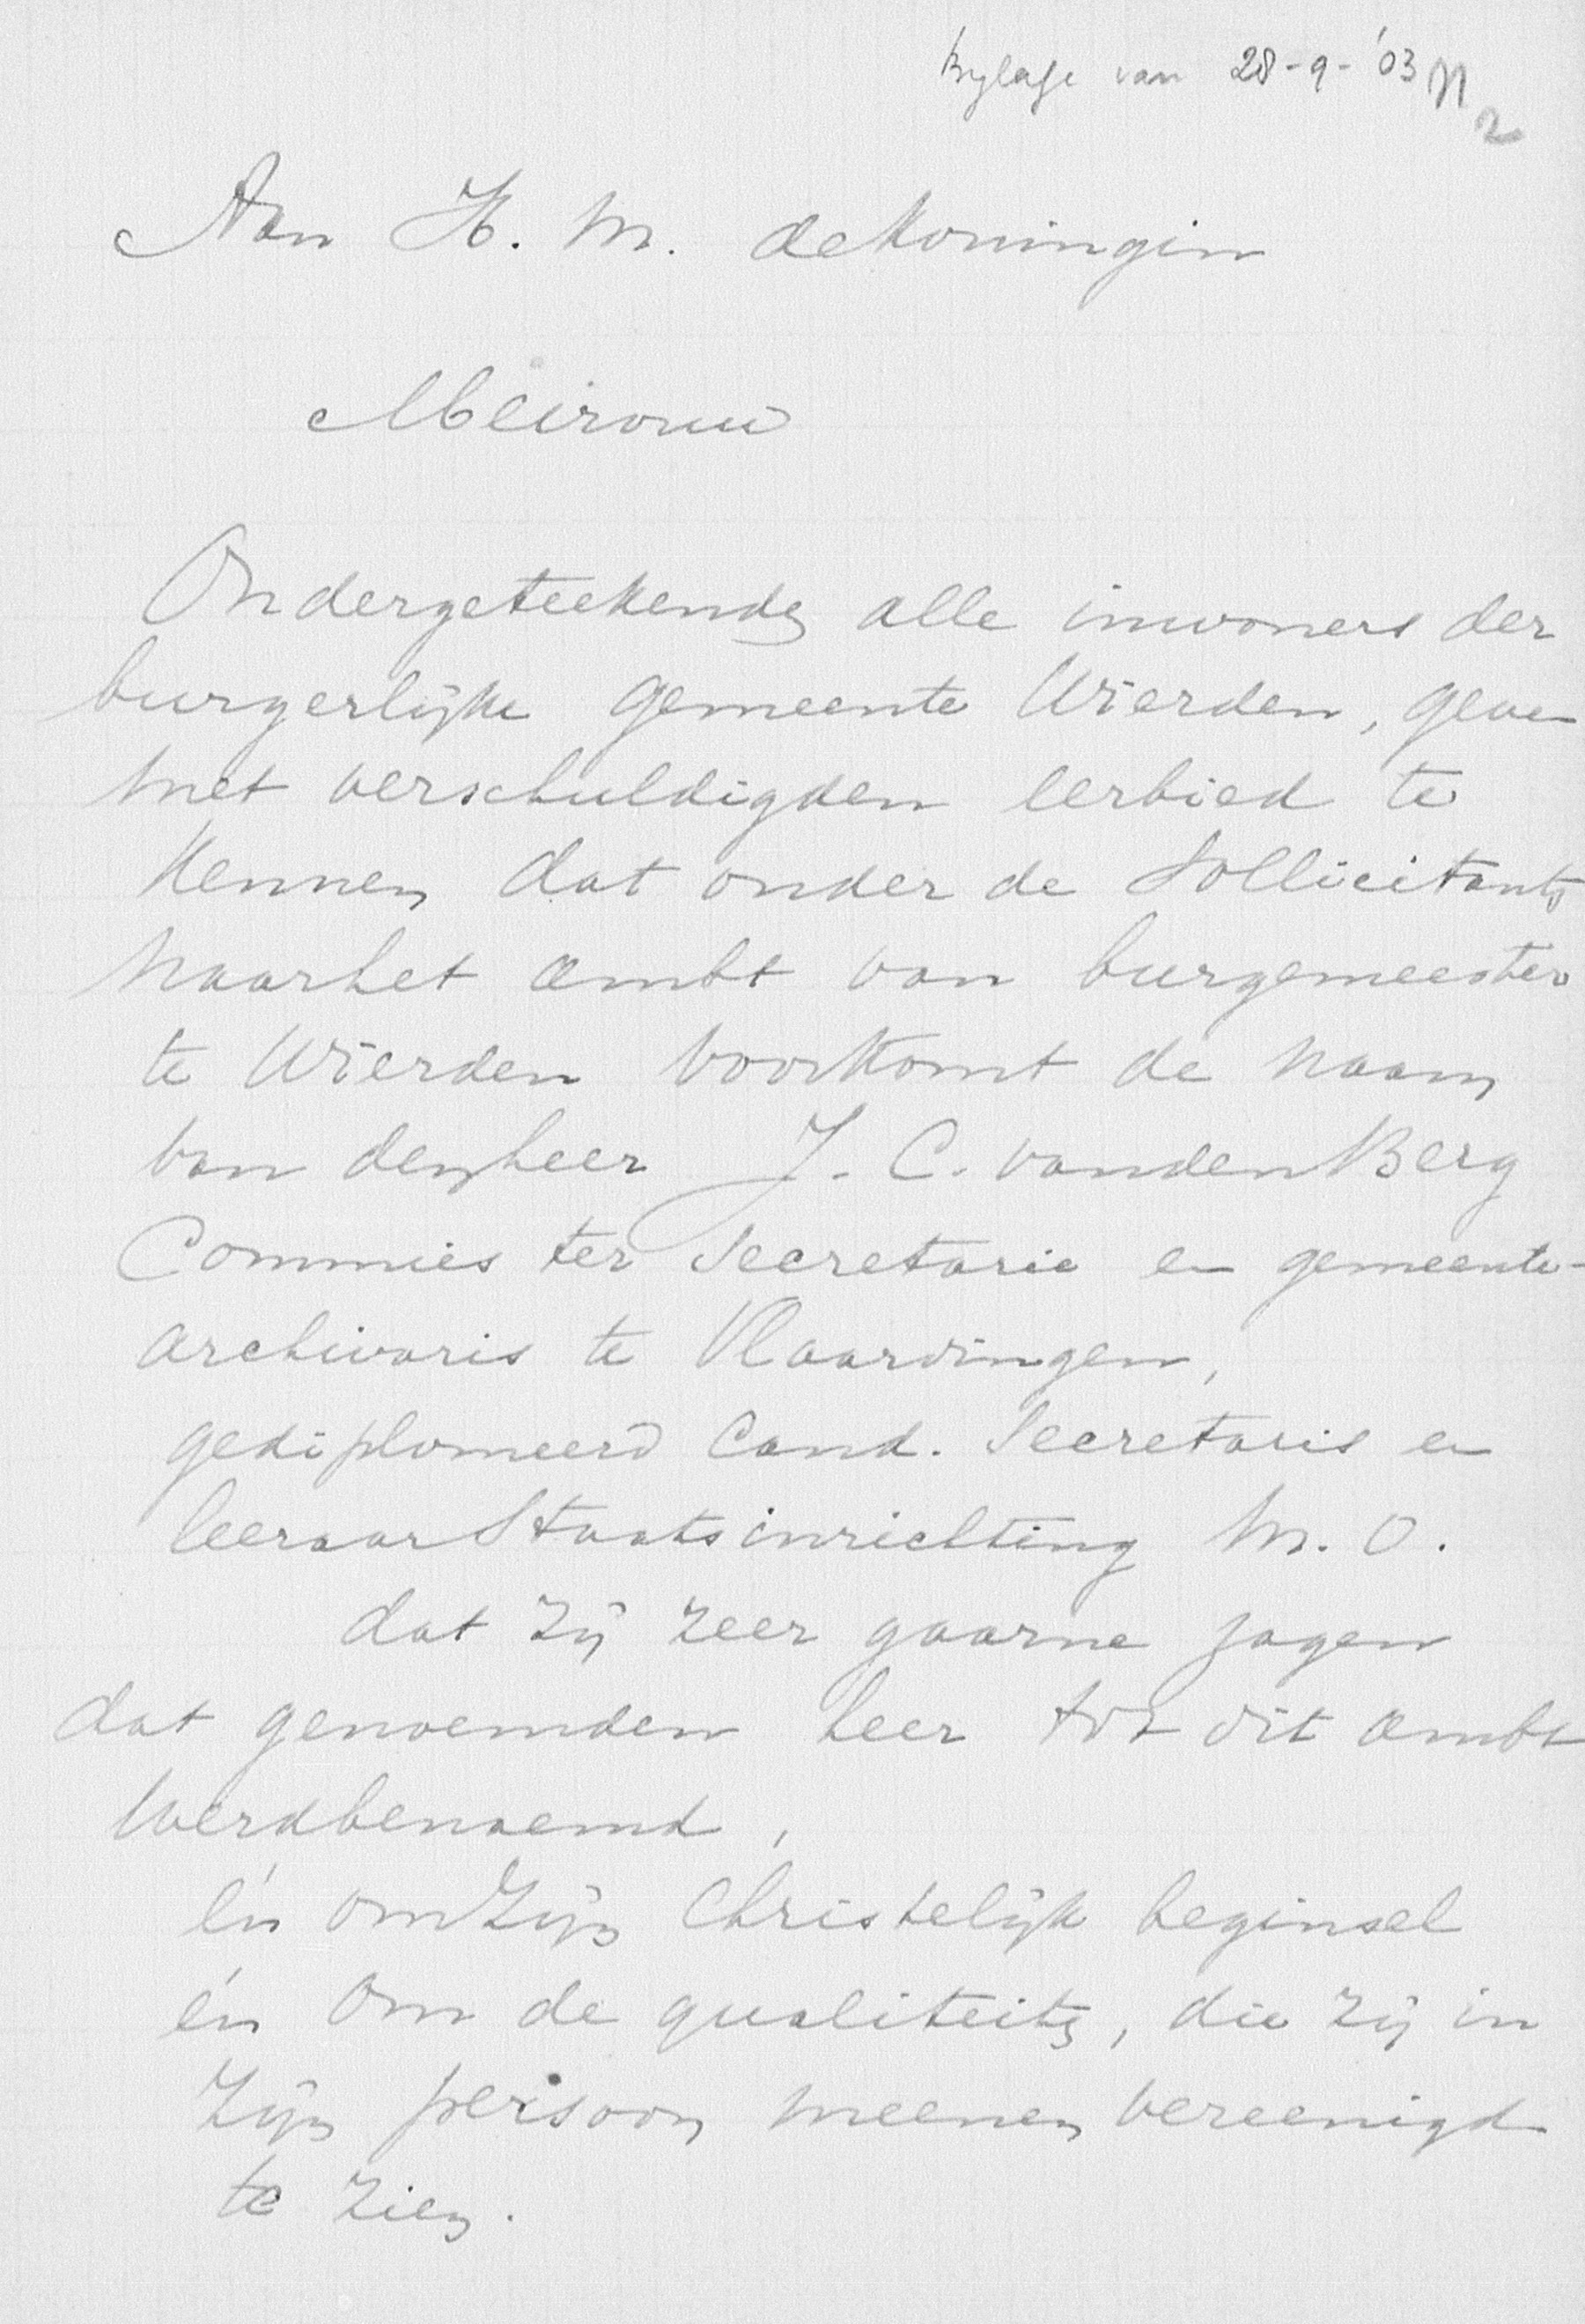 Bylage van 28-9-'03 N 2
Aan H. M. de Koningin
Mevrouw
Ondergeteekenden alle inwoners der
burgerlijke gemeente Wierden, geven
met verschuldigden eerbied te
kennen dat onder de Sollicitanten
naar het ambt van burgemeester
te Wierden voorkomt de naam
van den heer J. C. van den Berg
Commies ter Secretarie en gemeente-
archivaris te Vlaardingen,
gediplomeerd Cand. Secretaris en
leeraar Staatsinrichting M. O.
dat zij zeer gaarne zagen
dat genoemden heer tot dit ambt
werd benoemd,
én om zijn Christelijk beginsel
én om de qualiteiten, die zij in
zijn persoon meenen vereenigd
te zien.